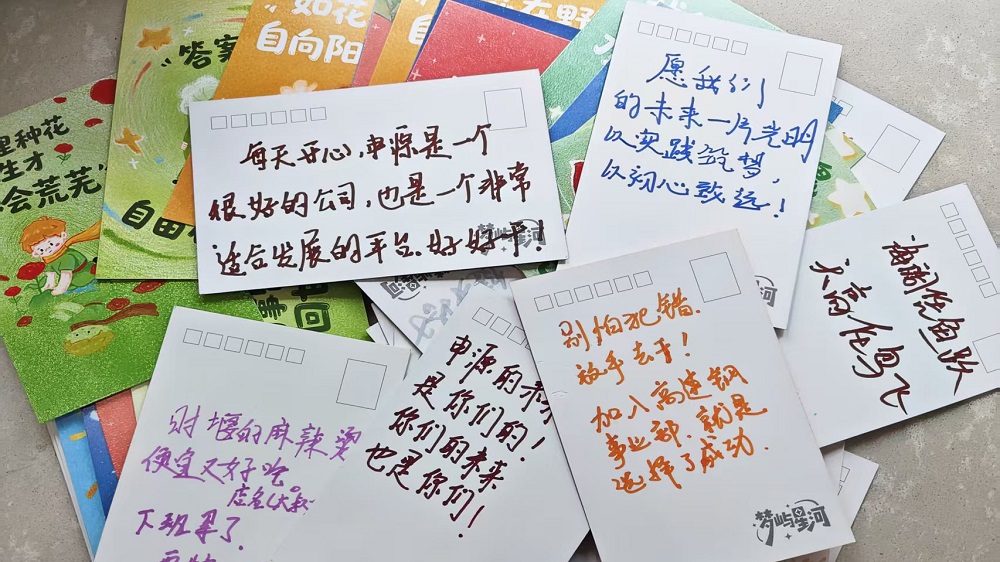 如花
自向阳
答案
里种花
生才
会荒芜
自由
每天开心,申源是一个
很好的公司,也是一个非常
适合发展的平台.好好干!
梦屿星河
愿我们
的未来一片光明
以实践筑梦,
以初心致远!
海阔凭鱼跃
天高任鸟飞
别怕犯错.
放手去干!
加入高速钢
事业部.就是
选择了成功.
梦屿星河
申源的未
是你们的!
你们的未来
也是你们!
财堰的麻辣烫
便宜又好吃
店名《大叔
下班累了.